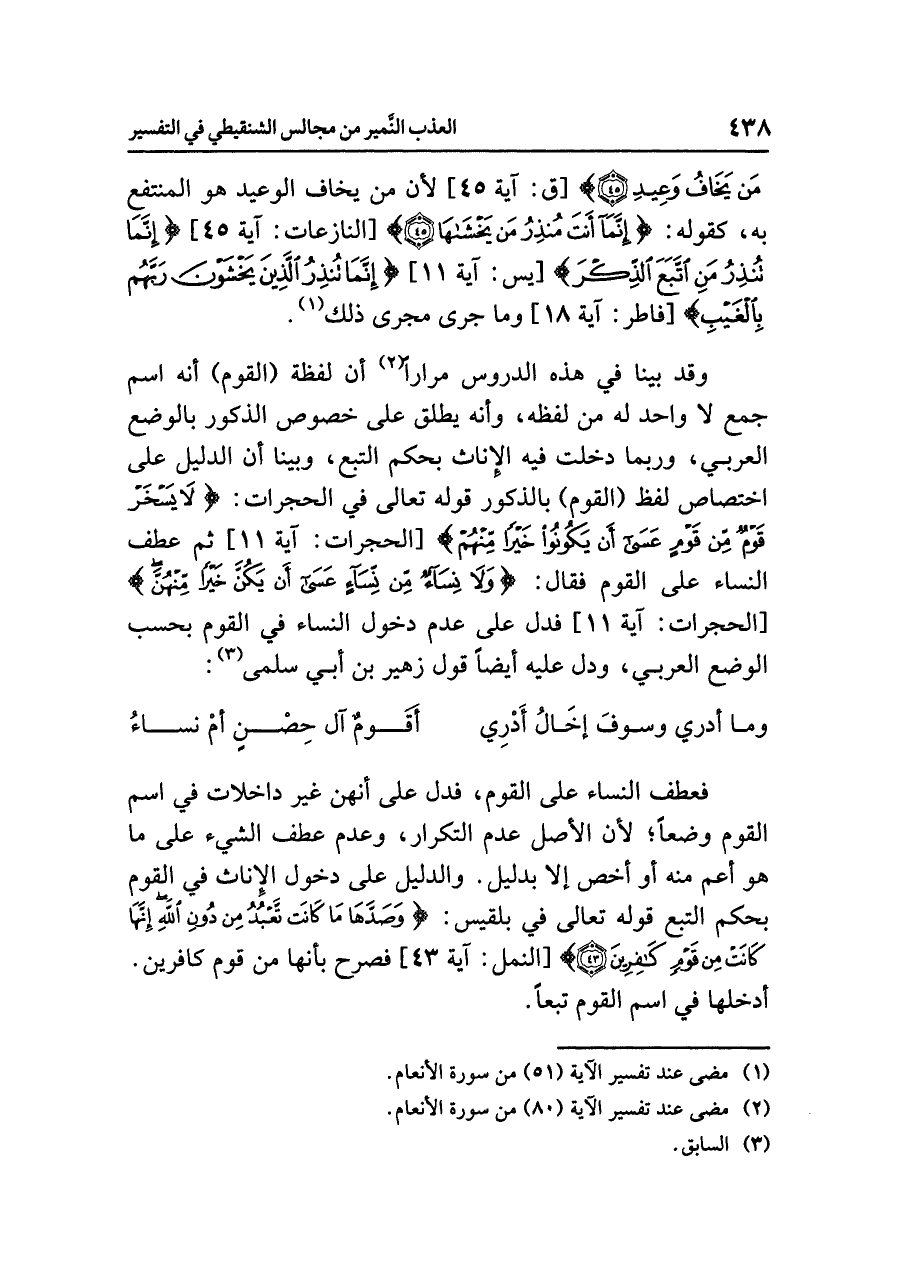 ٤٣٨ العذب النَّمير من مجالس الشنقيطي في التفسير
مَن يَخَافُ وَعِيدِ ﴿٤٥﴾﴾ [ق: آية ٤٥] لأن من يخاف الوعيد هو المنتفع
به، كقوله: ﴿إِنَّمَآ أَنتَ مُنذِرُ مَن يَخْشَىٰهَا ﴿٤٥﴾﴾ [النازعات: آية ٤٥] ﴿إِنَّمَا
تُنذِرُ مَنِ ٱتَّبَعَ ٱلذِّكْرَ﴾ [يس: آية ١١] ﴿إِنَّمَا تُنذِرُ ٱلَّذِينَ يَخْشَوْنَ رَبَّهُم
بِٱلْغَيْبِ﴾ [فاطر: آية ١٨] وما جرى مجرى ذلك(١).
وقد بينا في هذه الدروس مراراً(٢) أن لفظة (القوم) أنه اسم
جمع لا واحد له من لفظه، وأنه يطلق على خصوص الذكور بالوضع
العربـي، وربما دخلت فيه الإناث بحكم التبع، وبينا أن الدليل على
اختصاص لفظ (القوم) بالذكور قوله تعالى في الحجرات: ﴿لَا يَسْخَرْ
قَوْمٌ مِّن قَوْمٍ عَسَىٰٓ أَن يَكُونُوا۟ خَيْرًا مِّنْهُمْ﴾ [الحجرات: آية ١١] ثم عطف
النساء على القوم فقال: ﴿وَلَا نِسَآءٌ مِّن نِّسَآءٍ عَسَىٰٓ أَن يَكُنَّ خَيْرًا مِّنْهُنَّۖ﴾
[الحجرات: آية ١١] فدل على عدم دخول النساء في القوم بحسب
الوضع العربـي، ودل عليه أيضاً قول زهير بن أبـي سلمى(٣):
ومـا أدري وسـوفَ إخَـالُ أَدْرِي أَقَــومٌ آل حِصْــنٍ أمْ نســاءُ
فعطف النساء على القوم، فدل على أنهن غير داخلات في اسم
القوم وضعاً؛ لأن الأصل عدم التكرار، وعدم عطف الشيء على ما
هو أعم منه أو أخص إلا بدليل. والدليل على دخول الإناث في القوم
بحكم التبع قوله تعالى في بلقيس: ﴿وَصَدَّهَا مَا كَانَت تَّعْبُدُ مِن دُونِ ٱللَّهِۖ إِنَّهَا
كَانَتْ مِن قَوْمٍ كَـٰفِرِينَ ﴿٤٣﴾﴾ [النمل: آية ٤٣] فصرح بأنها من قوم كافرين.
أدخلها في اسم القوم تبعاً.
(١) مضى عند تفسير الآية (٥١) من سورة الأنعام.
(٢) مضى عند تفسير الآية (٨٠) من سورة الأنعام.
(٣) السابق.